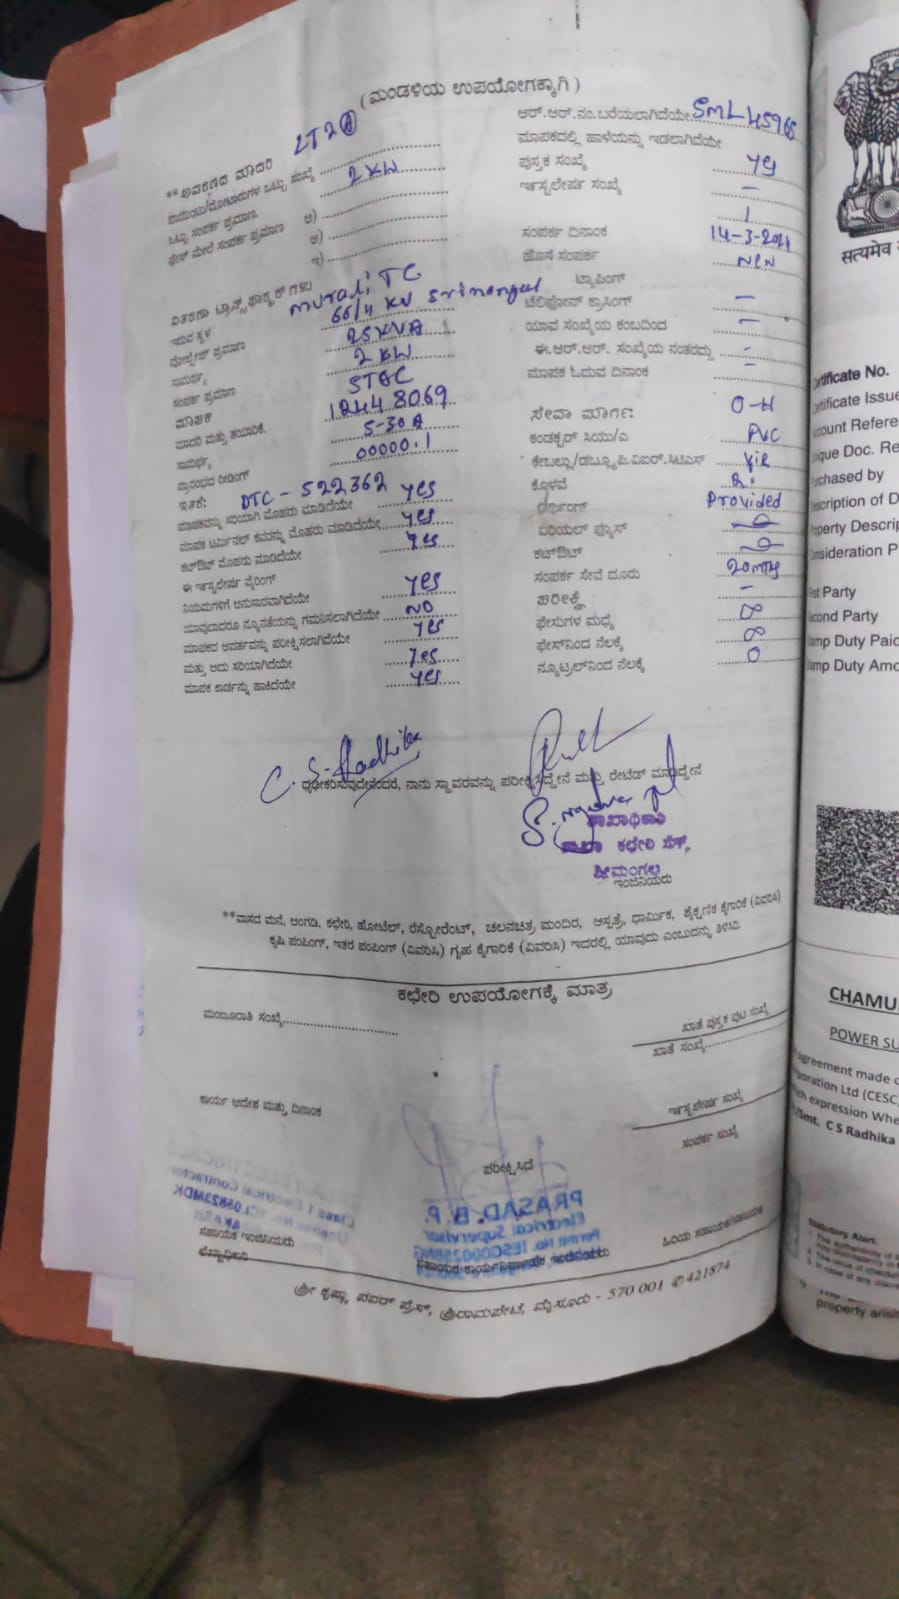 (ಮಂಡಳಿಯ ಉಪಯೋಗಕ್ಕಾಗಿ)
**ಆವರಣದ ಮಾದರಿ LT2
ಪಾಯಿಂಟು/ಮೋಟಾರುಗಳ ಒಟ್ಟು ಸಂಖ್ಯೆ
ಒಟ್ಟು ಸಂಪರ್ಕ ಪ್ರಮಾಣ 2 KW
ಫೇಸ್ ಮೇಲೆ ಸಂಪರ್ಕ ಪ್ರಮಾಣ ಅ)
ಆ)
ಇ)
ವಿತರಣಾ ಟ್ರಾನ್ಸ್‌ಫಾರ್ಮರ್‌ಗಳು
ಇರುವ ಸ್ಥಳ TC
ವೋಲ್ಟೇಜ್ ಪ್ರಮಾಣ 66/11 KV Srimangal
ಸಾಮರ್ಥ್ಯ 25KVA
ಸಂಪರ್ಕ ಪ್ರಮಾಣ 2 KW
ಮಾಪಕ
ಮಾದರಿ ಮತ್ತು ತಯಾರಿಕೆ. 12448069
ಸಾಮರ್ಥ್ಯ 5-30A
ಪ್ರಾರಂಭದ ರೀಡಿಂಗ್ 00000.1
ಇತರೆ: DTC - 522362
ಮಾಪಕವನ್ನು ಸರಿಯಾಗಿ ಮೊಹರು ಮಾಡಿದೆಯೇ yes
ಮಾಪಕ ಟರ್ಮಿನಲ್ ಕವರನ್ನು ಮೊಹರು ಮಾಡಿದೆಯೇ yes
ಕಟ್‌ಔಟ್ ಮೊಹರು ಮಾಡಿದೆಯೇ yes
ಈ ಇನ್ಸ್ಟಲೇಷನ್ ವೈರಿಂಗ್
ನಿಯಮಗಳಿಗೆ ಅನುಸಾರವಾಗಿದೆಯೇ yes
ಯಾವುದಾದರೂ ನ್ಯೂನತೆಯನ್ನು ಗಮನಿಸಲಾಗಿದೆಯೇ NO
ಮಾಪಕದ ಆವರ್ತವನ್ನು ಪರೀಕ್ಷಿಸಲಾಗಿದೆಯೇ yes
ಮತ್ತು ಅದು ಸರಿಯಾಗಿದೆಯೇ yes
ಮಾಪಕ ಕಾರ್ಡನ್ನು ಹಾಕಿದೆಯೇ yes
ಆರ್.ಆರ್.ನಂ.ಬರೆಯಲಾಗಿದೆಯೇ SML45965
ಮಾಪಕದಲ್ಲಿ ಹಾಳೆಯನ್ನು ಇಡಲಾಗಿದೆಯೇ
ಪುಸ್ತಕ ಸಂಖ್ಯೆ yes
ಇನ್ಸ್ಟಲೇಷನ್ ಸಂಖ್ಯೆ –
1
ಸಂಪರ್ಕ ದಿನಾಂಕ 14-3-2024
ಹೊಸ ಸಂಪರ್ಕ New
ಟ್ಯಾಪಿಂಗ್
ಟೆಲಿಫೋನ್ ಕ್ರಾಸಿಂಗ್ –
ಯಾವ ಸಂಖ್ಯೆಯ ಕಂಬದಿಂದ –
ಈ.ಆರ್.ಆರ್. ಸಂಖ್ಯೆಯ ನಂತರದ್ದು –
ಮಾಪಕ ಓದುವ ದಿನಾಂಕ –
ಸೇವಾ ಮಾರ್ಗ: O-H
ಕಂಡಕ್ಟರ್ ಸಿಯು/ಎ PVC
ಕೇಬಲ್ಲು/ಡಬ್ಲ್ಯೂ.ಪಿ.ವಿಐಆರ್.ಸಿಟಿಎಸ್ VIR
ಕೊಳವೆ
ಅರ್ಥಿಂಗ್ Provided
ಏರಿಯಲ್ ಫ್ಯೂಸ್
ಕಟ್‌ಔಟ್
ಸಂಪರ್ಕ ಸೇವೆ ದೂರು 20mtrs
ಪರೀಕ್ಷೆ –
ಫೇಸುಗಳ ಮಧ್ಯೆ ∞
ಫೇಸ್‌ನಿಂದ ನೆಲಕ್ಕೆ ∞
ನ್ಯೂಟ್ರಲ್‌ನಿಂದ ನೆಲಕ್ಕೆ 0
C. S. Radhika
ಧೃಢೀಕರಿಸುವುದೇನೆಂದರೆ, ನಾನು ಸ್ಥಾವರವನ್ನು ಪರೀಕ್ಷಿಸಿದ್ದೇನೆ ಮತ್ತು ರೇಟೆಡ್ ಮಾಡಿದ್ದೇನೆ
ಶಾಖಾಧಿಕಾರಿ
ಶಾಖಾ ಕಛೇರಿ
ಶ್ರೀಮಂಗಲ
ಇಂಜಿನಿಯರು
**ವಾಸದ ಮನೆ, ಅಂಗಡಿ, ಕಛೇರಿ, ಹೋಟೆಲ್, ರೆಸ್ಟೋರೆಂಟ್, ಚಲನಚಿತ್ರ ಮಂದಿರ, ಆಸ್ಪತ್ರೆ, ಧಾರ್ಮಿಕ, ಶೈಕ್ಷಣಿಕ ಕೈಗಾರಿಕೆ (ವಿವರಿಸಿ)
ಕೃಷಿ ಪಂಪಿಂಗ್, ಇತರ ಪಂಪಿಂಗ್ (ವಿವರಿಸಿ) ಗೃಹ ಕೈಗಾರಿಕೆ (ವಿವರಿಸಿ) ಇದರಲ್ಲಿ ಯಾವುದು ಎಂಬುದನ್ನು ತಿಳಿಸಿರಿ.
ಕಛೇರಿ ಉಪಯೋಗಕ್ಕೆ ಮಾತ್ರ
ಮಂಜೂರಾತಿ ಸಂಖ್ಯೆ
ಖಾತೆ ಪುಸ್ತಕ ಪುಟ ಸಂಖ್ಯೆ
ಖಾತೆ ಸಂಖ್ಯೆ
ಕಾರ್ಯ ಆದೇಶ ಮತ್ತು ದಿನಾಂಕ
ಇನ್ಸ್ಟಲೇಷನ್ ಸಂಖ್ಯೆ
ಸಂಪರ್ಕ ಸಂಖ್ಯೆ
ಪರೀಕ್ಷಿಸಿದೆ
Class 1 Electrical Contractor
PRASAD. B. P.
Electrical Supervisor
ಸಹಾಯಕ ಇಂಜಿನಿಯರು
ಸಹಾಯಕ ಕಾರ್ಯನಿರ್ವಾಹಕ ಇಂಜಿನಿಯರು
ಹಿರಿಯ ಸಹಾಯಕ/ಸಹಾಯಕ
ಶ್ರೀ ಕೃಷ್ಣಾ ಪವರ್ ಪ್ರೆಸ್, ಶ್ರೀರಾಮಪೇಟೆ, ಮೈಸೂರು - 570 001 ✆ 421874
सत्यमेव
Certificate No.
Certificate Issue
Account Refere
Unique Doc. Re
Purchased by
Description of D
Property Descrip
Consideration P
First Party
Second Party
Stamp Duty Paid
Stamp Duty Amo
CHAMU
POWER SU
agreement made
Corporation Ltd (CESC)
which expression Whe
/Smt. C S Radhika
Statutory Alert:
property arisi